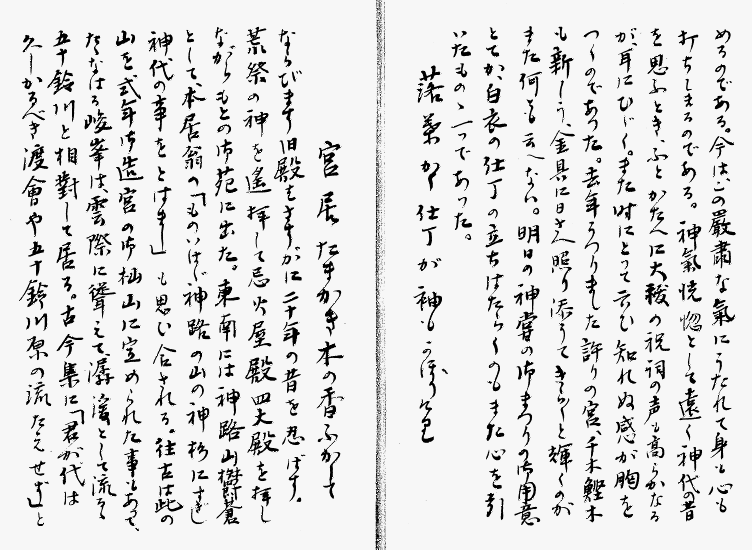 めるのである。今は、この嚴肅な氣にうたれて身も心も
打ちしまるのである。神氣恍惚として遠く神代の昔
を思ふとき、ふとかたへに大祓の祝詞の声も高らかなる
が、耳にひゞく。また時にとつて云ひ知れぬ感が胸を
つくのであつた。去年うつりました許りの宮、千木鰹木
も新しう、金具に日さへ照り添うてきら〱と輝くのが
また何とも云へない。明日の神嘗の御まつりの御用意
とてか、白衣の仕丁の立ちはたらくのもまた心を引
いたものゝ一つであつた。
落葉かく仕丁が袖も
宮居たまかき木の香ふかして
ならびます旧殿をさすがに二十年の昔を忍ばす。
荒祭の神を遙拝して忌火屋殿四丈殿を拝し
ながらもとの御苑に出た。東南には神路山欝蒼
として、本居翁の「ものいはゞ神路の山の神杉にすぎし
神代の事をとはまし」も思ひ合される。往古は此の
山を式年御造宮の御杣山に定められた事もあつて、
たゝなはる峻峯は雲際に聳えて、潺湲として流るゝ
五十鈴川と相對して居る。古今集に「君が代は
久しかるべき渡會や五十鈴川原の流たえせず」と